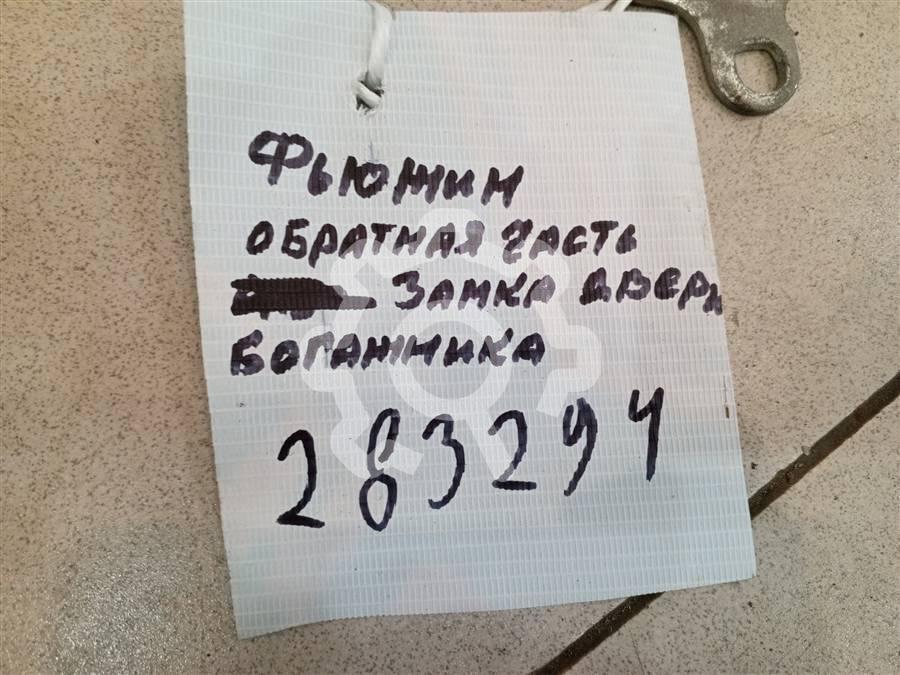 Фьюжин
ОБРАТНАЯ ЧАСТЬ
ЗАМКА ДВЕРИ
БОГАЖНИКА
283294